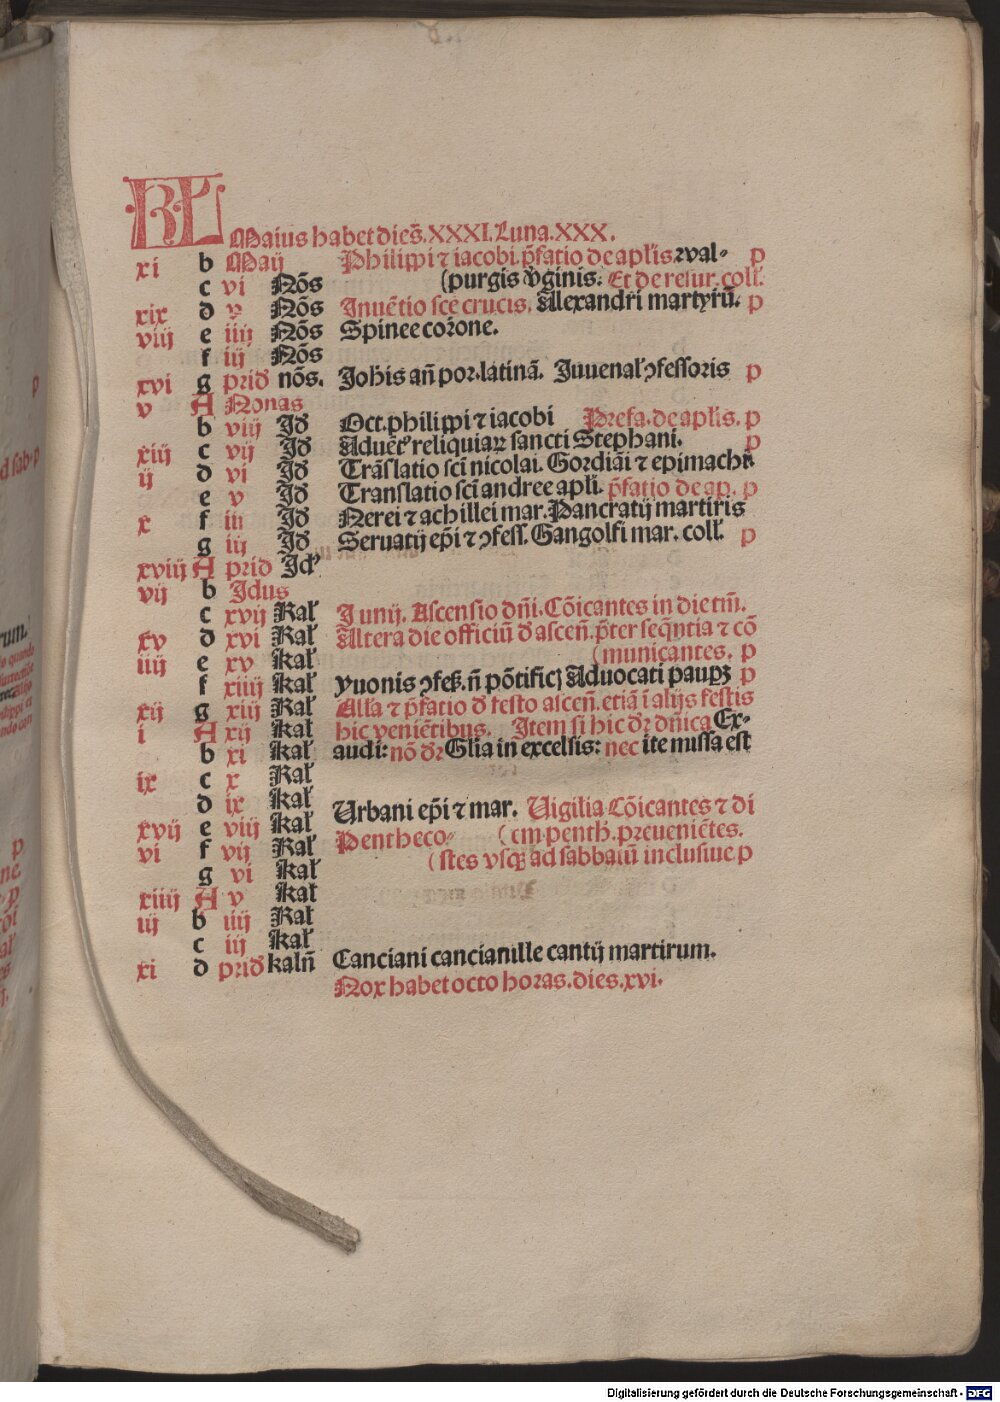 KL Maius habet dies̃.XXXI.Luna.XXX.
xi b Maij Philippi ⁊ iacobi. p̃fatio de aplis. ⁊wal- p
c vi Nõs (purgis v̾ginis. Et de resur. coll'.
xix d v Nõs Inuẽtio sce crucis. Alexandri martyrũ. p
viij e iiij Nõs Spinee corone.
f iij Nõs
xvi g prid nõs. Johis añ por.latinã. Iuuenal' ɔfessoris p
v A Nonas
b viij Id Oct.philippi ⁊ iacobi Prefa.de aplis. p
xiij c vij Id Aduẽt' reliquiaꝝ sancti Stephani. p
ij d vi Id Trãslatio sci nicolai. Gordiãi ⁊ epimachi
e v Id Translatio sci andree apli. p̃fatio de ap. p
x f iiij Id Nerei ⁊ achillei mar. Pancratij martiris
g iij Id Seruatij ep̃i ⁊ ɔfess. Gangolfi mar. coll'. p
xviij A prid Id'
vij b Idus
c xvij Kal' Junij. Ascensio dñi. Cõicantes in die tm̃.
xv d xvi Kal' Altera die officiũ d' asceñ. p̃ter seq̃ntia ⁊ cõ
iiij e xv kal' (municantes. p
f xiiij kal' yuonis ɔfes̃. ñ põtificꝭ Aduocati paupꝝ p
xij g xiij Kal' Alla ⁊ p̃fatio d' festo asceñ. etiã ĩ alijs festis
i A xij kal' hic veniẽtibus. Item si hic dr̃ dñica Ex-
b xi kal' audi: nõ dr̃ Glia in excelsis: nec ite missa est
ix c x Kal'
d ix kal' Urbani ep̃i ⁊ mar. Uigilia Cõicantes ⁊ di
xvij e viij kal' Pentheco- (cm penth. preueniẽtes.
vi f vij Kal' (stes vsqꝫ ad sabbatũ inclusiue p
g vi kal'
xiiij A v kal'
iij b iiij Kal'
c iij kal'
xi d prid kalñ Canciani cancianille cantij martirum.
Nox habet octo horas.dies.xvi.
Digitalisierung gefördert durch die Deutsche Forschungsgemeinschaft - DFG